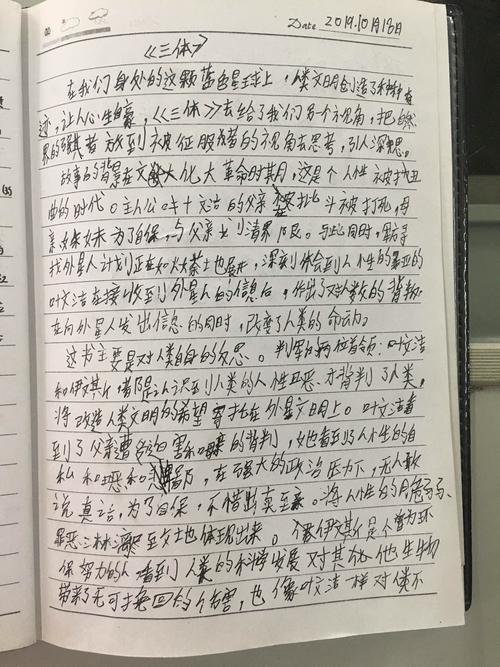 Date 2019.10月18日
《三体》
在我们身处的这颗蓝色星球上,人类文明创造了种种奇
迹,让人心生自豪,《三体》去给了我们另个视角,把自然
界的强者放到被征服者的视角去思考,引人深思。
故事的背景在文化大革命时其月,这是个人性被扭
曲的时代。主人公叶文洁的父亲被批斗被打死,母
亲妹妹为了自保,与父亲划清界限。与此同时,
找外星人计划正在如火如荼地展开,深刻体会到人性的丑恶的
叶文洁在接收到外星人的信息后,作出了对人类的背叛,
在向外星人发出信息的同时,改变了人类的命动。
这书主要是对人类自身的反思。判军的两位首领:叶文洁
和伊文斯,皆是认识到人类的人性丑恶才背判了人类,
将改造人类文明的希望寄托在外星文明上。叶文洁看
到了父亲遭的害和母亲的背判,她看到了人性的自
私和恶和,在强大的政治压力下,无人敢
说真话,为了自保,不惜出卖至亲。将人性的月危弱、
罪恶淋漓尽至地体现出来。伊文斯是个曾为环
保努力的人看到人类的科学发展对其他生物
带来了无可挽回的伤害,也像叶文洁一样对人类不